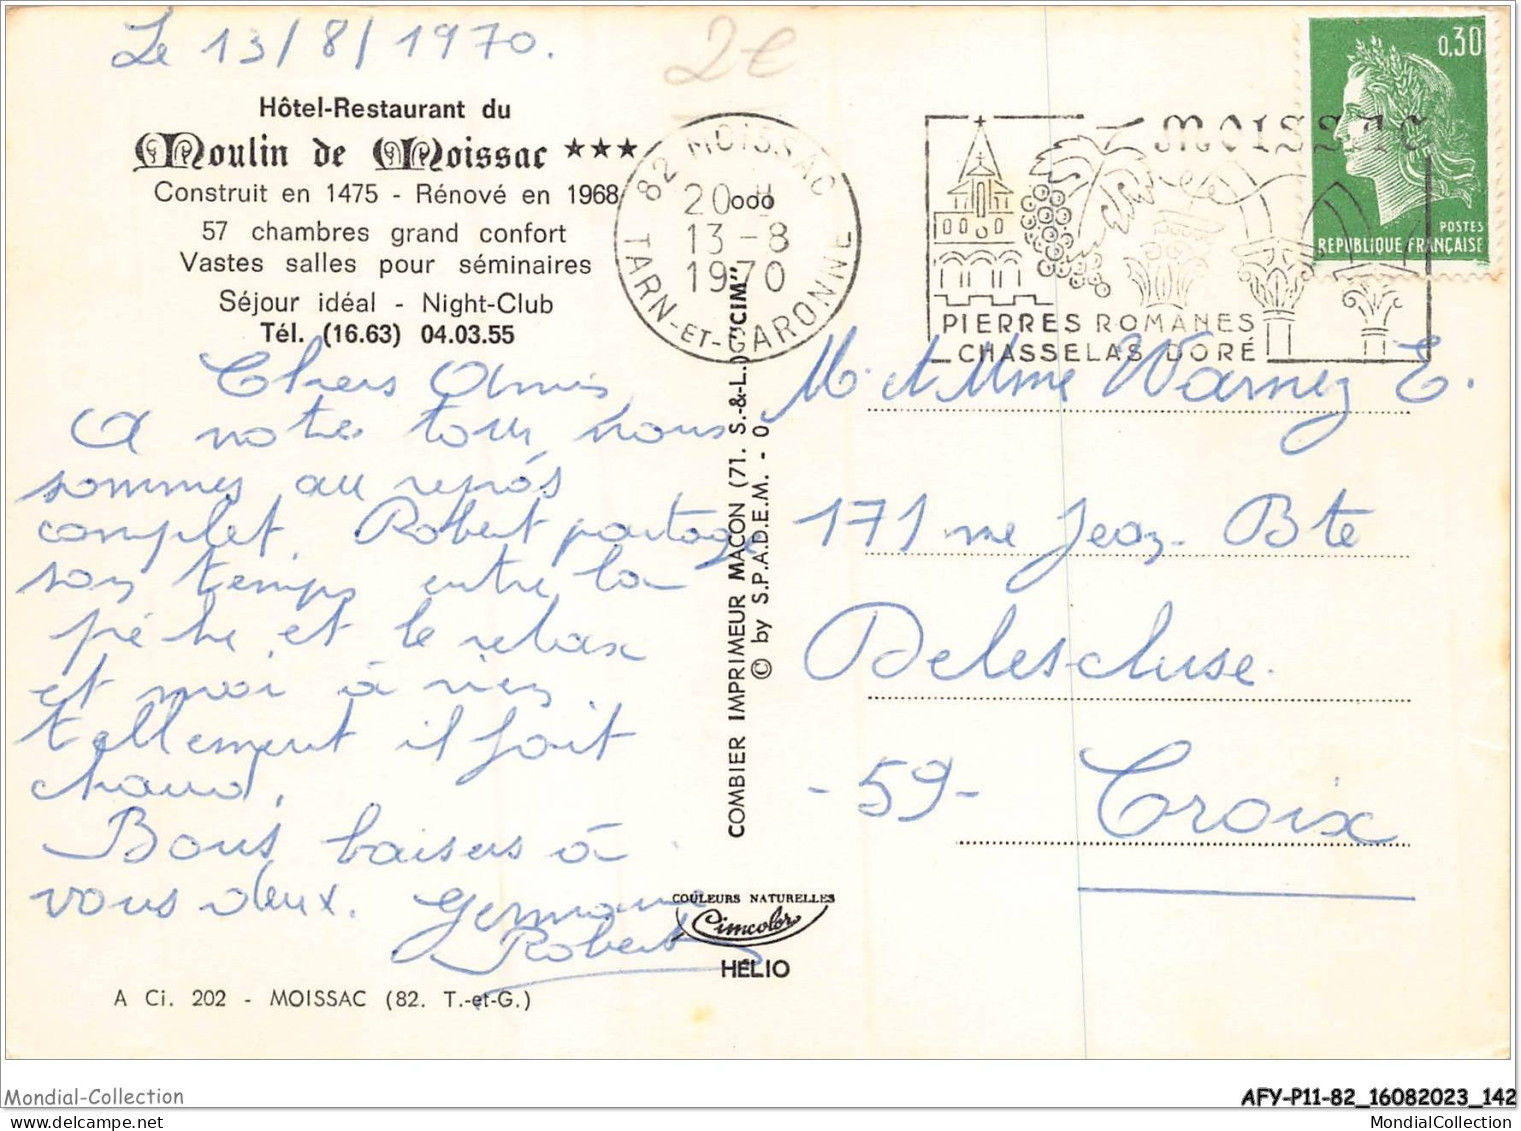 Le 13/8/1970.
2€
Hôtel-Restaurant du
Moulin de Moissac ★★★
Construit en 1475 - Rénové en 1968
57 chambres grand confort
Vastes salles pour séminaires
Séjour idéal - Night-Club
Tél. (16.63) 04.03.55
Chers Amis,
A notre tour nous
sommes au repos
complet. Robert partage
son temps entre la
pêche et le relax
et moi à rien
tellement il fait
chaud.
Bons baisers à
vous deux. Germaine
Robert
A Ci. 202 - MOISSAC (82. T.-et-G.)
COMBIER IMPRIMEUR MACON (71. S.-&-L.) "CIM"
© by S.P.A.D.E.M. - 0
COULEURS NATURELLES
Cimcolor
HELIO
82 MOISSAC
20
13-8
1970
TARN-ET-GARONNE
MOISSAC
PIERRES ROMANES
CHASSELAS DORÉ
0,30
POSTES
REPUBLIQUE FRANÇAISE
M. et Mme Warnez E.
171 rue Jean-Bte
Delescluse.
-59- Croix
Mondial-Collection
AFY-P11-82_16082023_142
MondialCollection